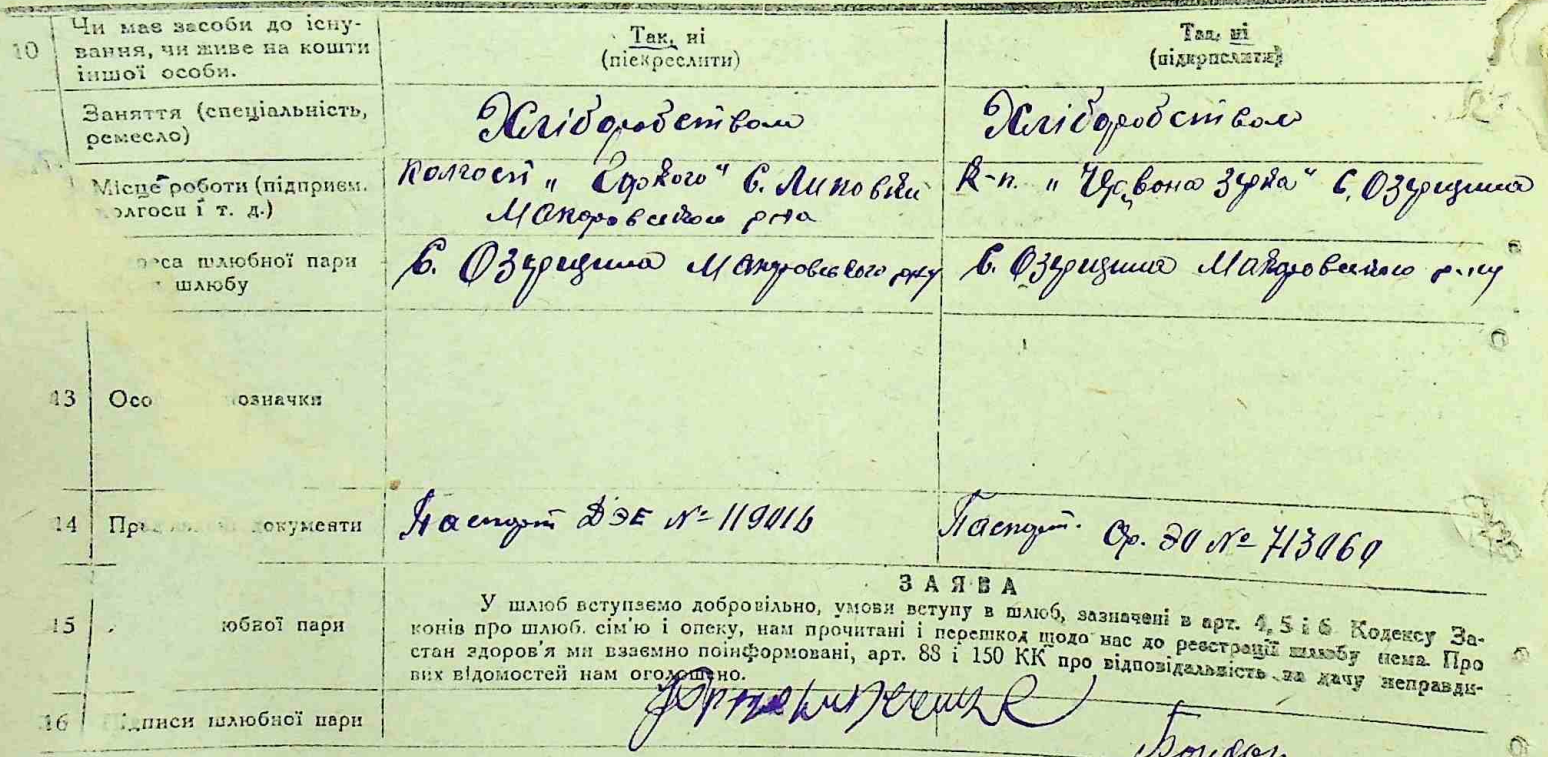 10 Чи має засоби до існу-
вання, чи живе на кошти
іншої особи.
Так, ні
(піекреслити)
Так, ні
(підкрпслити)
Заняття (спеціальність,
ремесло)
Хліборобством
Хліборобством
Місце роботи (підприєм.
олгосп і т. д.)
Колгосп „ Горького" С. Липовка
Макаровського р-на
К-п. „ Червона Зірка" С. Озерщина
реса шлюбної пари
шлюбу
С. Озерщина Макаровського р-ну
С. Озерщина Макаровського р-ну
13 Осо означки
14 Пре документи
Паспорт № 119016
Паспорт. Ср. ЭО № 713060
ЗАЯВА
15 юбної пари
У шлюб вступаємо добровільно, умови вступу в шлюб, зазначені в арт. 4, 5 і 6 Кодексу За-
конів про шлюб. сім'ю і опеку, нам прочитані і перешкод щодо нас до реєстрації шлюбу нема. Про
стан здоров'я ми взаємно поінформовані, арт. 88 і 150 КК про відповідальність за дачу неправди-
вих відомостей нам оголошено.
16 Підписи шлюбної пари